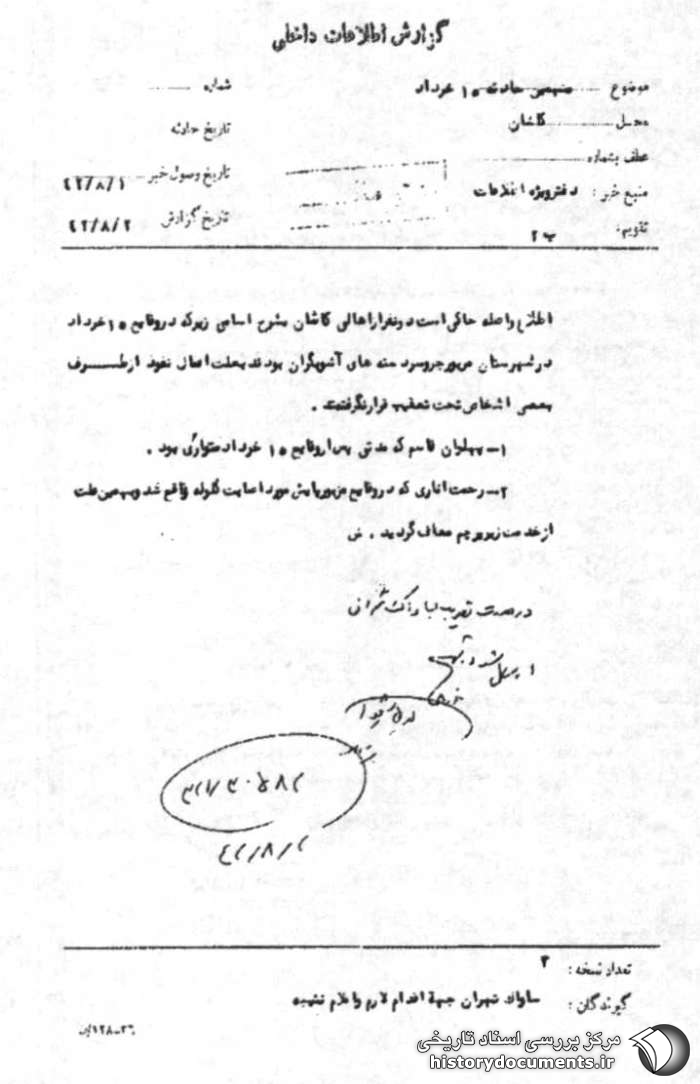 گزارش اطلاعات داخلی
موضوع متهمین حادثه ۱۵ خرداد
شماره
محل کاشان
تاریخ حادثه
عطف بشماره
تاریخ وصول خبر ۴۲/۸/۱
منبع خبر : دفتر ویژه اطلاعات
تاریخ گزارش ۴۲/۸/۲
تقویم : ب ۲
اطلاع واصله حاکی است دونفر از اهالی کاشان بشرح اسامی زیر که در وقایع ۱۵ خرداد
در شهرستان مزبور جزو سردسته های آشوبگران بودند بعلت اعمال نفوذ از طرف
بعضی اشخاص تحت تعقیب قرار نگرفتند .
۱- پهلوان قاسم که مدتی پس از وقایع ۱۵ خرداد متواری بود .
۲- رحمت اناری که در وقایع مزبور پایش مورد اصابت گلوله واقع شد و بهمین علت
از خدمت زیر پرچم معاف گردید . ش
در صورت
۴۲/۸/۲
تعداد نسخه : ۲
گیرندگان : ساواک تهران جهة اقدام لازم و اعلام نتیجه
۱۲۸-۳۶
مرکز بررسی اسناد تاریخی
historydocuments.ir